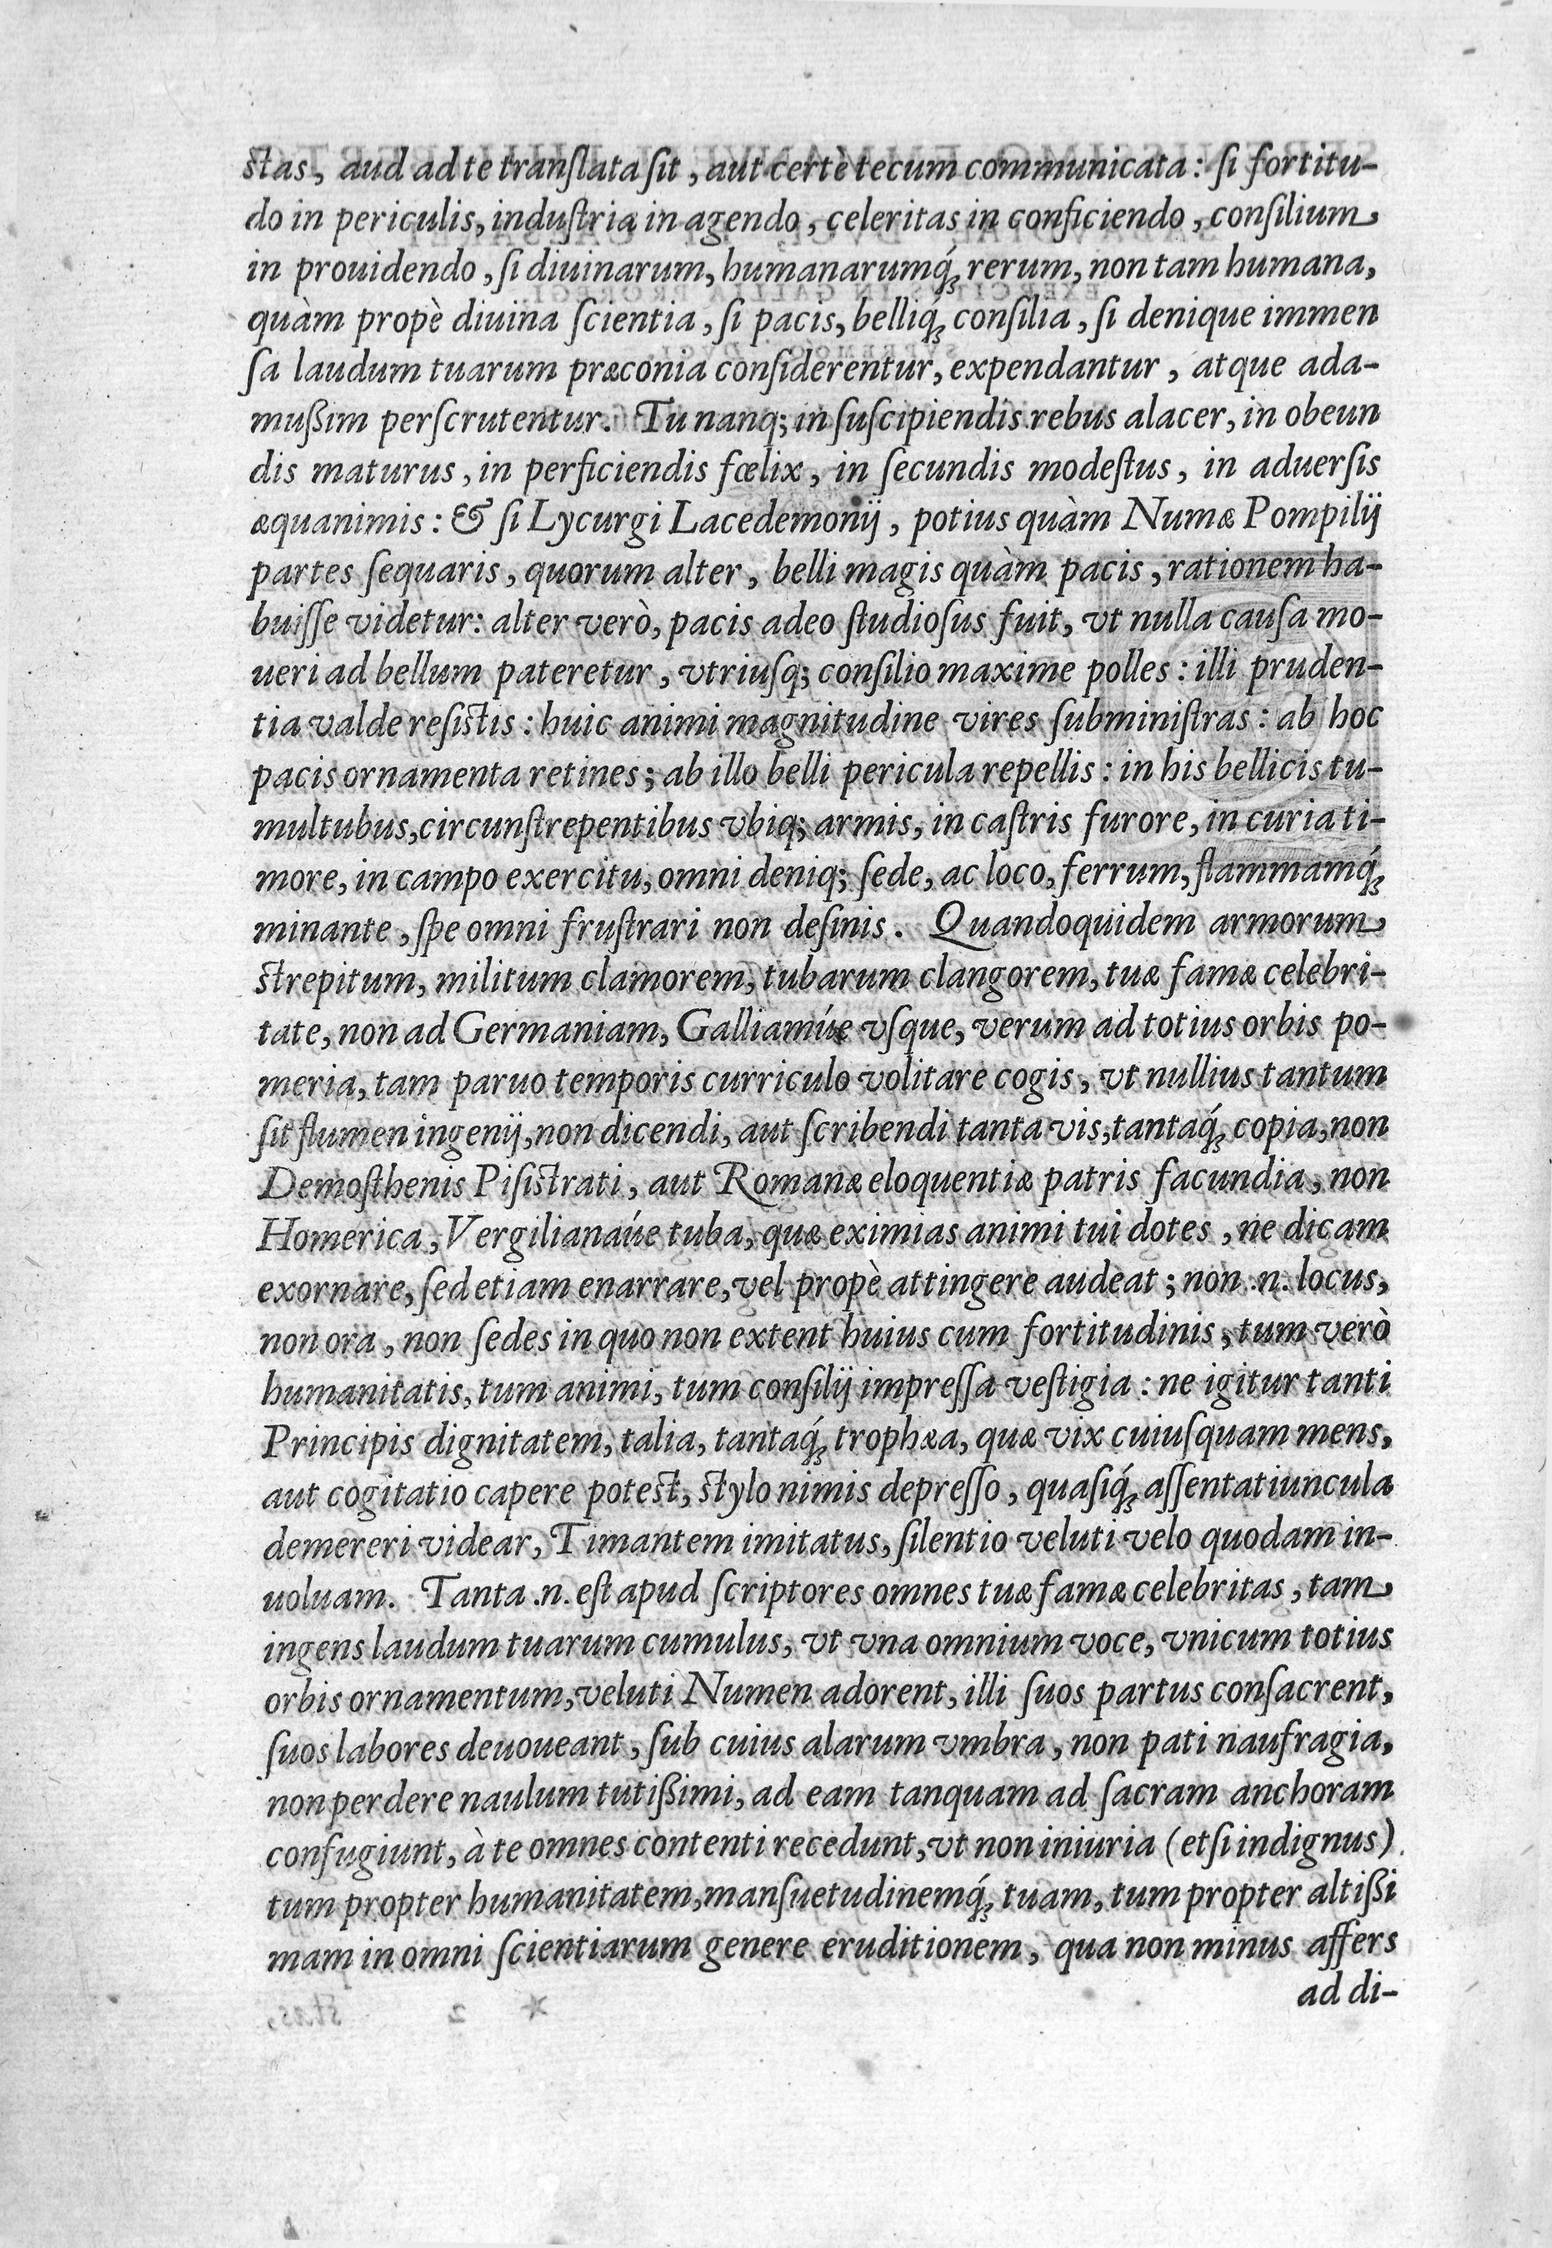 ſtas, aud ad te tranſlata ſit, aut certè tecum communicata: ſi fortitu-
do in periculis, induſtria in agendo, celeritas in conficiendo, conſilium
in prouidendo, ſi diuinarum, humanarumq́ꝫ rerum, non tam humana,
quàm propè diuina ſcientia, ſi pacis, belliq́ꝫ conſilia, ſi denique immen
ſa laudum tuarum præconia conſiderentur, expendantur, atque ada-
mußim perſcrutentur. Tu nanq; in ſuſcipiendis rebus alacer, in obeun
dis maturus, in perficiendis fœlix, in ſecundis modeſtus, in aduerſis
æquanimis: & ſi Lycurgi Lacedemonij, potius quàm Numæ Pompilij
partes ſequaris, quorum alter, belli magis quàm pacis, rationem ha-
buiſſe videtur: alter verò, pacis adeo ſtudioſus fuit, vt nulla cauſa mo-
ueri ad bellum pateretur, vtriuſq; conſilio maxime polles: illi pruden-
tia valde reſiſtis: huic animi magnitudine vires ſubminiſtras: ab hoc
pacis ornamenta retines; ab illo belli pericula repellis: in his bellicis tu-
multubus, circunſtrepentibus vbiq; armis, in caſtris furore, in curia ti-
more, in campo exercitu, omni deniq; ſede, ac loco, ferrum, flammamq́ꝫ
minante, ſpe omni fruſtrari non deſinis. Quandoquidem armorum
ſtrepitum, militum clamorem, tubarum clangorem, tuæ famæ celebri-
tate, non ad Germaniam, Galliamúe vſque, verum ad totius orbis po-
meria, tam paruo temporis curriculo volitare cogis, vt nullius tantum
ſit flumen ingenij, non dicendi, aut ſcribendi tanta vis, tantaq́ꝫ copia, non
Demoſthenis Piſiſtrati, aut Romanæ eloquentiæ patris facundia, non
Homerica, Vergilianaúe tuba, quæ eximias animi tui dotes, ne dicam
exornare, ſed etiam enarrare, vel propè attingere audeat; non .n. locus,
non ora, non ſedes in quo non extent huius cum fortitudinis, tum verò
humanitatis, tum animi, tum conſilij impreſſa veſtigia: ne igitur tanti
Principis dignitatem, talia, tantaq́ꝫ trophæa, quæ vix cuiuſquam mens,
aut cogitatio capere poteſt, ſtylo nimis depreſſo, quaſiq́ꝫ aſſentatiuncula
demereri videar, Timantem imitatus, ſilentio veluti velo quodam in-
uoluam. Tanta .n. eſt apud ſcriptores omnes tuæ famæ celebritas, tam
ingens laudum tuarum cumulus, vt vna omnium voce, vnicum totius
orbis ornamentum, veluti Numen adorent, illi ſuos partus conſacrent,
ſuos labores deuoueant, ſub cuius alarum vmbra, non pati naufragia,
non perdere naulum tutißimi, ad eam tanquam ad ſacram anchoram
confugiunt, à te omnes contenti recedunt, vt non iniuria (etſi indignus)
tum propter humanitatem, manſuetudinemq́ꝫ tuam, tum propter altißi
mam in omni ſcientiarum genere eruditionem, qua non minus affers
ad di-